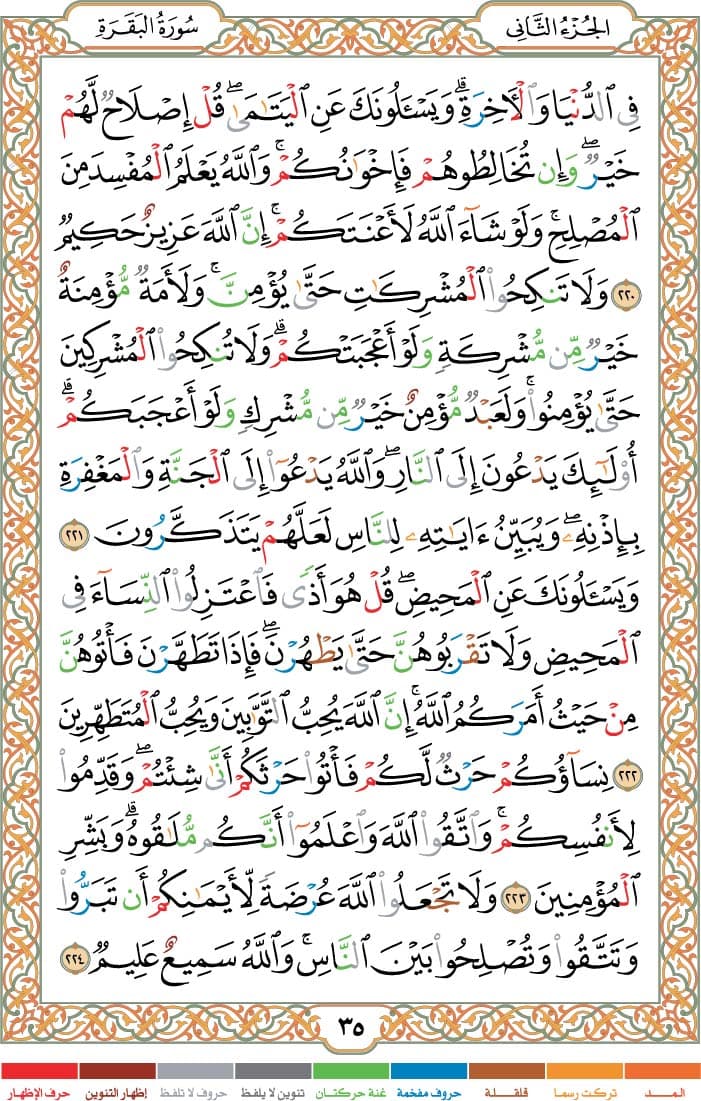 الجُزْءُ الثَّانِى
سُورَةُ البَقَرَةِ
فِى ٱلدُّنْيَا وَٱلْأَخِرَةِۗ وَيَسْـَٔلُونَكَ عَنِ ٱلْيَتَـٰمَىٰۖ قُلْ إِصْلَاحٌ لَّهُمْ
خَيْرٌۖ وَإِن تُخَالِطُوهُمْ فَإِخْوَٰنُكُمْۚ وَٱللَّهُ يَعْلَمُ ٱلْمُفْسِدَ مِنَ
ٱلْمُصْلِحِۚ وَلَوْ شَآءَ ٱللَّهُ لَأَعْنَتَكُمْۚ إِنَّ ٱللَّهَ عَزِيزٌ حَكِيمٌ
٢٢٠ وَلَا تَنكِحُوا۟ ٱلْمُشْرِكَـٰتِ حَتَّىٰ يُؤْمِنَّۚ وَلَأَمَةٌ مُّؤْمِنَةٌ
خَيْرٌ مِّن مُّشْرِكَةٍ وَلَوْ أَعْجَبَتْكُمْۗ وَلَا تُنكِحُوا۟ ٱلْمُشْرِكِينَ
حَتَّىٰ يُؤْمِنُوا۟ۚ وَلَعَبْدٌ مُّؤْمِنٌ خَيْرٌ مِّن مُّشْرِكٍ وَلَوْ أَعْجَبَكُمْۗ
أُو۟لَـٰٓئِكَ يَدْعُونَ إِلَى ٱلنَّارِۖ وَٱللَّهُ يَدْعُوٓا۟ إِلَى ٱلْجَنَّةِ وَٱلْمَغْفِرَةِ
بِإِذْنِهِۦۖ وَيُبَيِّنُ ءَايَـٰتِهِۦ لِلنَّاسِ لَعَلَّهُمْ يَتَذَكَّرُونَ ٢٢١
وَيَسْـَٔلُونَكَ عَنِ ٱلْمَحِيضِۖ قُلْ هُوَ أَذًى فَٱعْتَزِلُوا۟ ٱلنِّسَآءَ فِى
ٱلْمَحِيضِ وَلَا تَقْرَبُوهُنَّ حَتَّىٰ يَطْهُرْنَۖ فَإِذَا تَطَهَّرْنَ فَأْتُوهُنَّ
مِنْ حَيْثُ أَمَرَكُمُ ٱللَّهُۚ إِنَّ ٱللَّهَ يُحِبُّ ٱلتَّوَّٰبِينَ وَيُحِبُّ ٱلْمُتَطَهِّرِينَ
٢٢٢ نِسَآؤُكُمْ حَرْثٌ لَّكُمْ فَأْتُوا۟ حَرْثَكُمْ أَنَّىٰ شِئْتُمْۖ وَقَدِّمُوا۟
لِأَنفُسِكُمْۚ وَٱتَّقُوا۟ ٱللَّهَ وَٱعْلَمُوٓا۟ أَنَّكُم مُّلَـٰقُوهُۗ وَبَشِّرِ
ٱلْمُؤْمِنِينَ ٢٢٣ وَلَا تَجْعَلُوا۟ ٱللَّهَ عُرْضَةً لِّأَيْمَـٰنِكُمْ أَن تَبَرُّوا۟
وَتَتَّقُوا۟ وَتُصْلِحُوا۟ بَيْنَ ٱلنَّاسِۚ وَٱللَّهُ سَمِيعٌ عَلِيمٌ ٢٢٤
٣٥
المـــد تركت رسما قلقـــلة حروف مفخمة غنة حركتان تنوين لا يلفظ حروف لا تلفظ إظهار التنوين حرف الإظهار